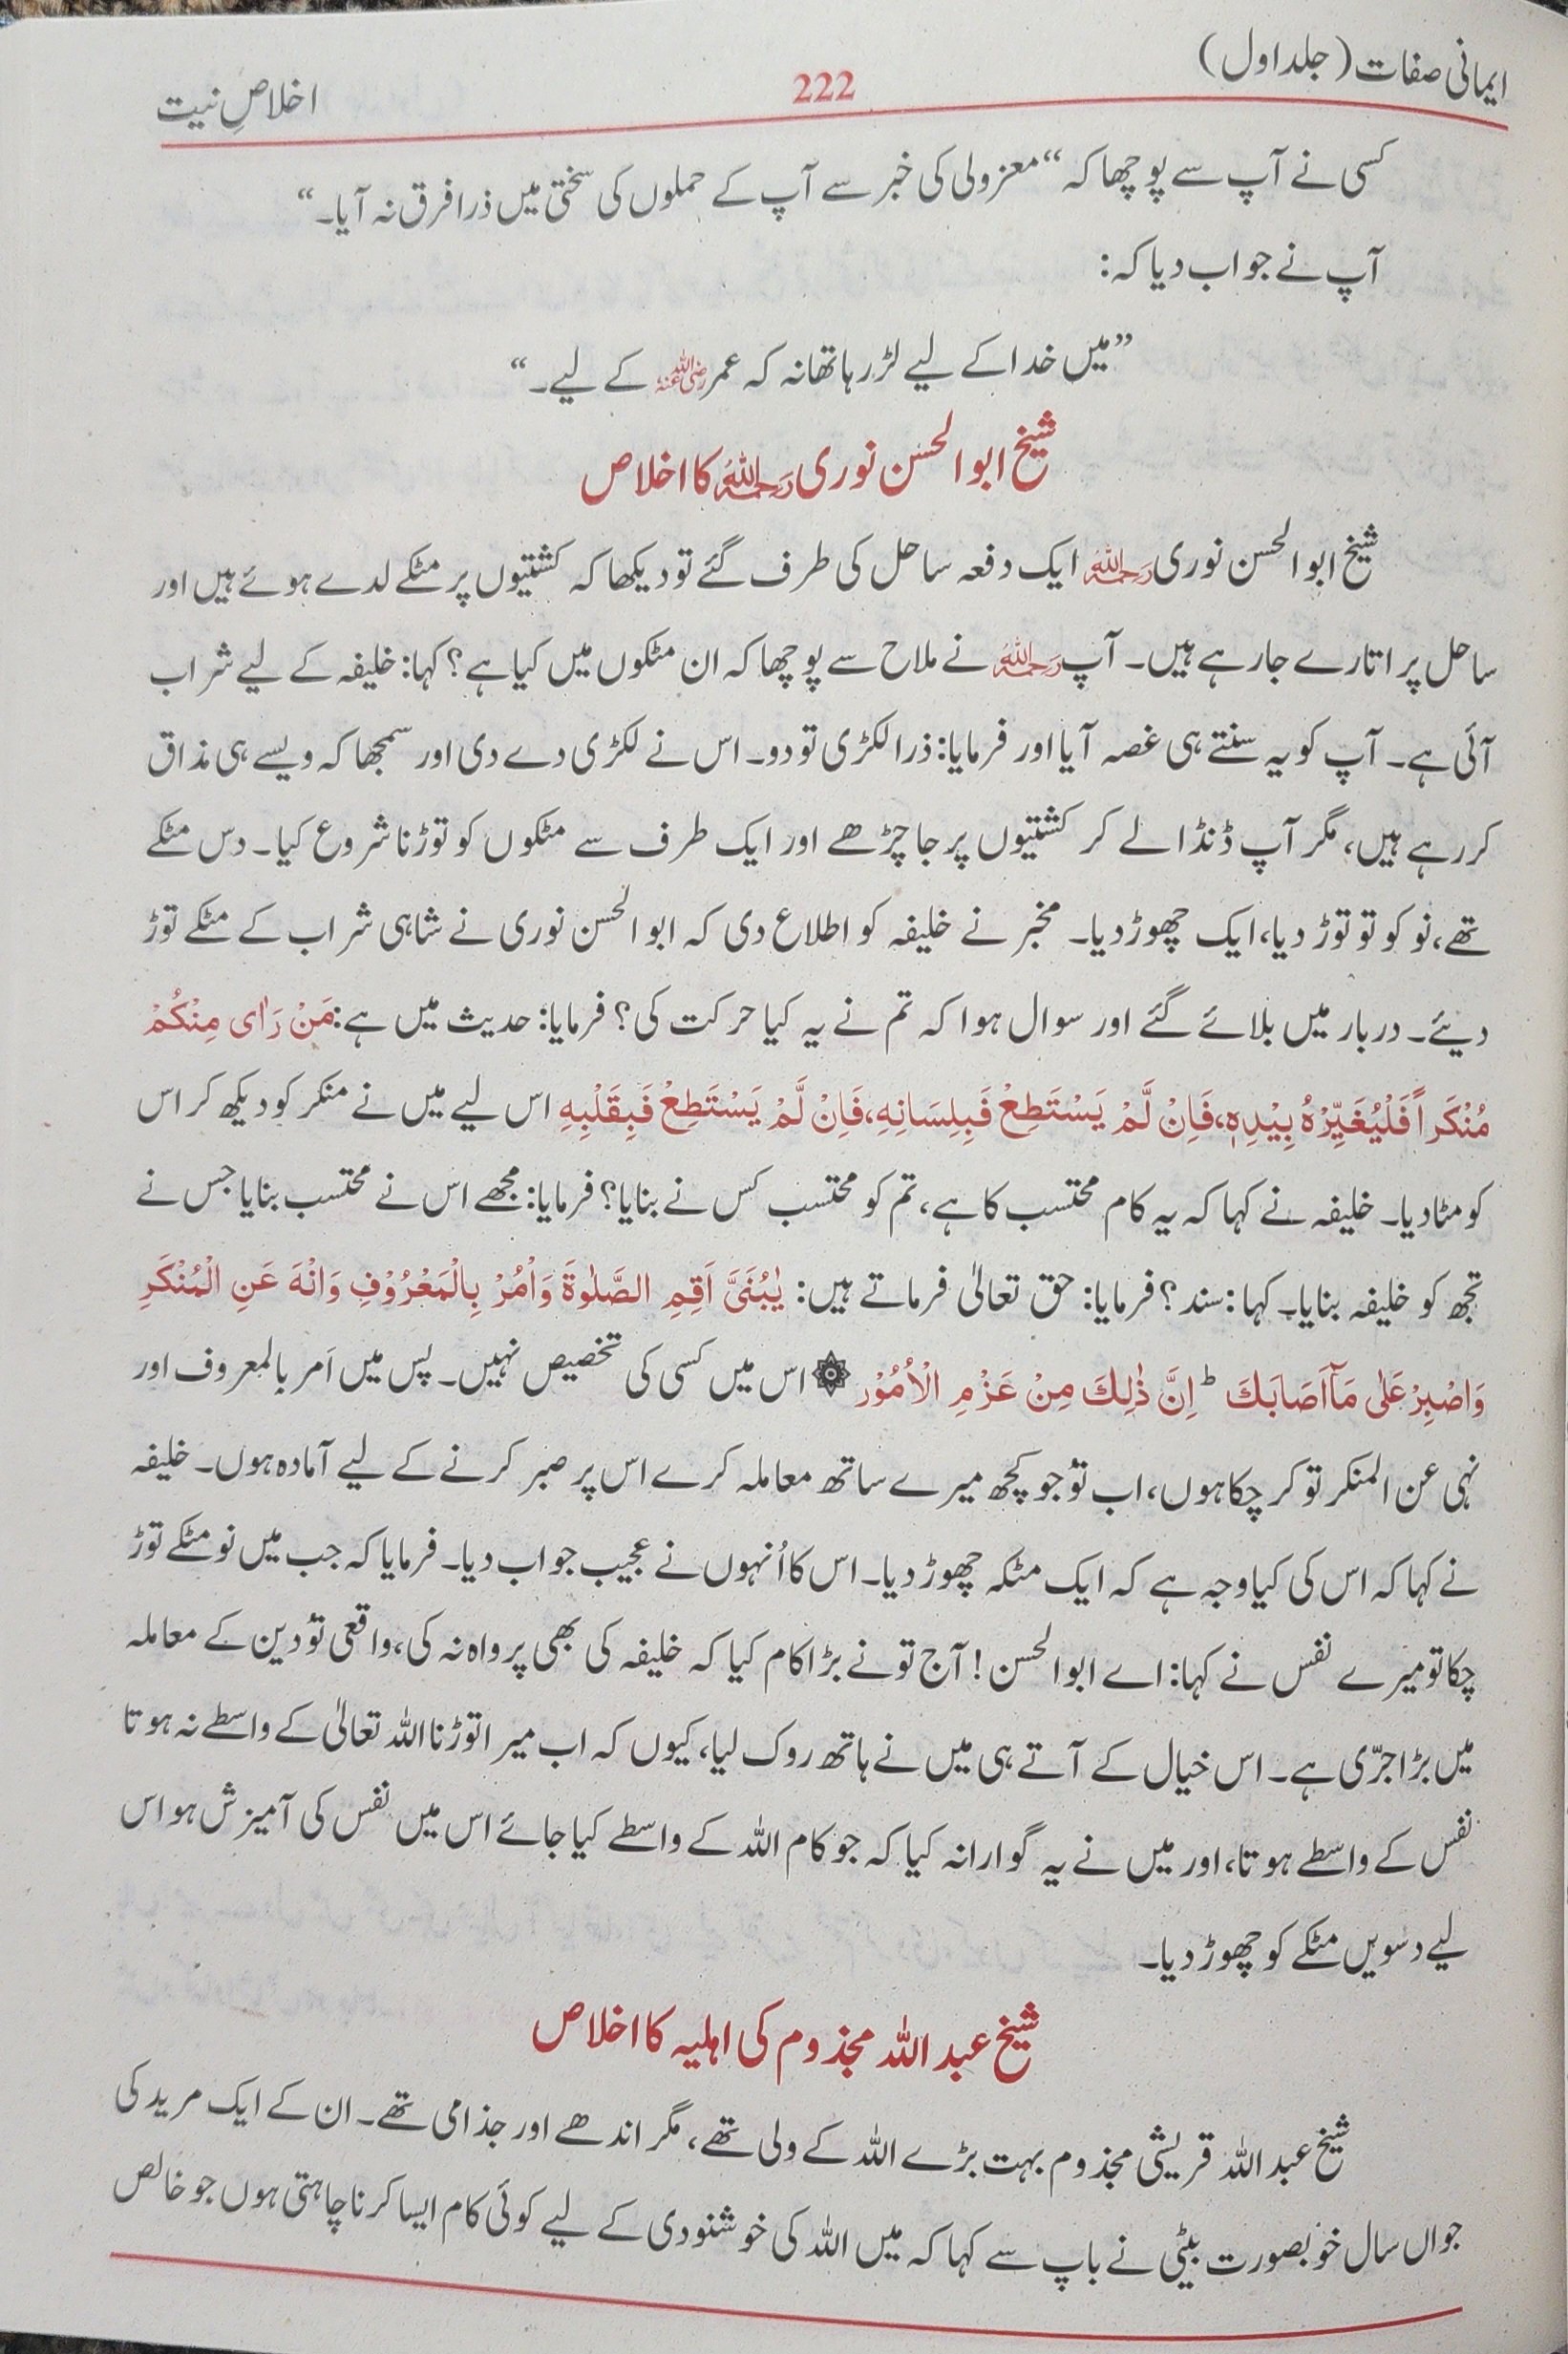 ایمانی صفات (جلد اول)
222
اخلاصِ نیت
کسی نے آپ سے پوچھا کہ “معزولی کی خبر سے آپ کے حملوں کی سختی میں ذرا فرق نہ آیا۔“
آپ نے جواب دیا کہ:
”میں خدا کے لیے لڑ رہا تھا نہ کہ عمر رضی اللہ عنہ کے لیے۔“
شیخ ابوالحسن نوری رحمہ اللہ کا اخلاص
شیخ ابوالحسن نوری رحمہ اللہ ایک دفعہ ساحل کی طرف گئے تو دیکھا کہ کشتیوں پر مٹکے لدے ہوئے ہیں اور
ساحل پر اتارے جا رہے ہیں۔ آپ رحمہ اللہ نے ملاح سے پوچھا کہ ان مٹکوں میں کیا ہے؟ کہا: خلیفہ کے لیے شراب
آئی ہے۔ آپ کو یہ سنتے ہی غصہ آیا اور فرمایا: ذرا لکڑی تو دو۔ اس نے لکڑی دے دی اور سمجھا کہ ویسے ہی مذاق
کر رہے ہیں، مگر آپ ڈنڈا لے کر کشتیوں پر جا چڑھے اور ایک طرف سے مٹکوں کو توڑنا شروع کیا۔ دس مٹکے
تھے، نو کو تو توڑ دیا، ایک چھوڑ دیا۔ مخبر نے خلیفہ کو اطلاع دی کہ ابوالحسن نوری نے شاہی شراب کے مٹکے توڑ
دیئے۔ دربار میں بلائے گئے اور سوال ہوا کہ تم نے یہ کیا حرکت کی؟ فرمایا: حدیث میں ہے: مَنْ رَاٰی مِنْکُمْ
مُنْکَراً فَلْیُغَیِّرْہُ بِیْدِہٖ، فَاِنْ لَّمْ یَسْتَطِعْ فَبِلِسَانِہِ، فَاِنْ لَّمْ یَسْتَطِعْ فَبِقَلْبِہِ اس لیے میں نے منکر کو دیکھ کر اس
کو مٹا دیا۔ خلیفہ نے کہا کہ یہ کام محتسب کا ہے، تم کو محتسب کس نے بنایا؟ فرمایا: مجھے اس نے محتسب بنایا جس نے
تجھ کو خلیفہ بنایا۔ کہا: سند؟ فرمایا: حق تعالیٰ فرماتے ہیں: یٰبُنَیَّ اَقِمِ الصَّلٰوۃَ وَاْمُرْ بِالْمَعْرُوْفِ وَانْہَ عَنِ الْمُنْکَرِ
وَاصْبِرْ عَلٰی مَاۤ اَصَابَکَ ؕ اِنَّ ذٰلِکَ مِنْ عَزْمِ الْاُمُوْر ۞ اس میں کسی کی تخصیص نہیں۔ پس میں اَمر بالمعروف اور
نہی عن المنکر تو کر چکا ہوں، اب تُو جو کچھ میرے ساتھ معاملہ کرے اس پر صبر کرنے کے لیے آمادہ ہوں۔ خلیفہ
نے کہا کہ اس کی کیا وجہ ہے کہ ایک مٹکہ چھوڑ دیا۔ اس کا اُنہوں نے عجیب جواب دیا۔ فرمایا کہ جب میں نو مٹکے توڑ
چکا تو میرے نفس نے کہا: اے ابوالحسن! آج تو نے بڑا کام کیا کہ خلیفہ کی بھی پرواہ نہ کی، واقعی تُو دین کے معاملہ
میں بڑا جرّی ہے۔ اس خیال کے آتے ہی میں نے ہاتھ روک لیا، کیوں کہ اب میرا توڑنا اللہ تعالیٰ کے واسطے نہ ہوتا
نفس کے واسطے ہوتا، اور میں نے یہ گوارا نہ کیا کہ جو کام اللہ کے واسطے کیا جائے اس میں نفس کی آمیزش ہو اس
لیے دسویں مٹکے کو چھوڑ دیا۔
شیخ عبد اللہ مجذوم کی اہلیہ کا اخلاص
شیخ عبد اللہ قریشی مجذوم بہت بڑے اللہ کے ولی تھے، مگر اندھے اور جذامی تھے۔ ان کے ایک مرید کی
جواں سال خوبصورت بیٹی نے باپ سے کہا کہ میں اللہ کی خوشنودی کے لیے کوئی کام ایسا کرنا چاہتی ہوں جو خالص